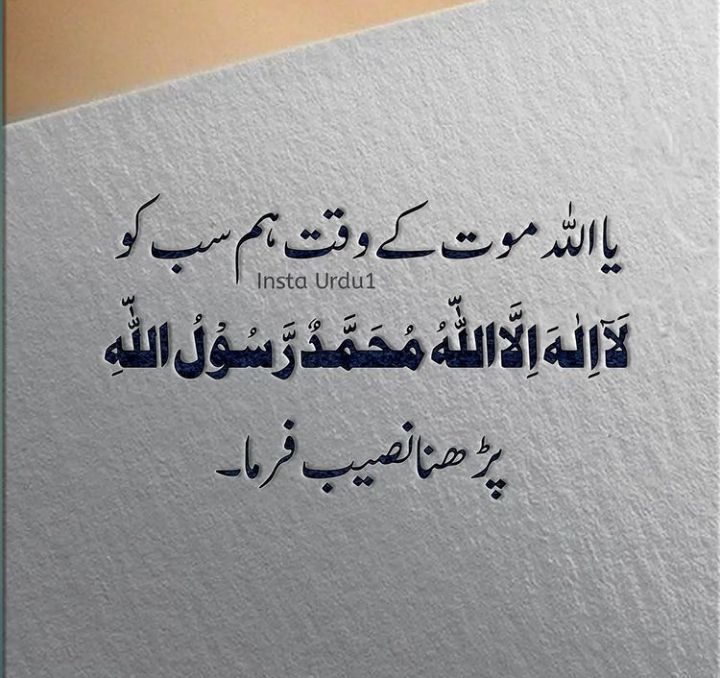 یا اللہ موت کے وقت ہم سب کو
Insta Urdu1
لَآ اِلٰهَ اِلَّا اللّٰهُ مُحَمَّدٌ رَّسُوْلُ اللّٰهِ
پڑھنا نصیب فرما۔